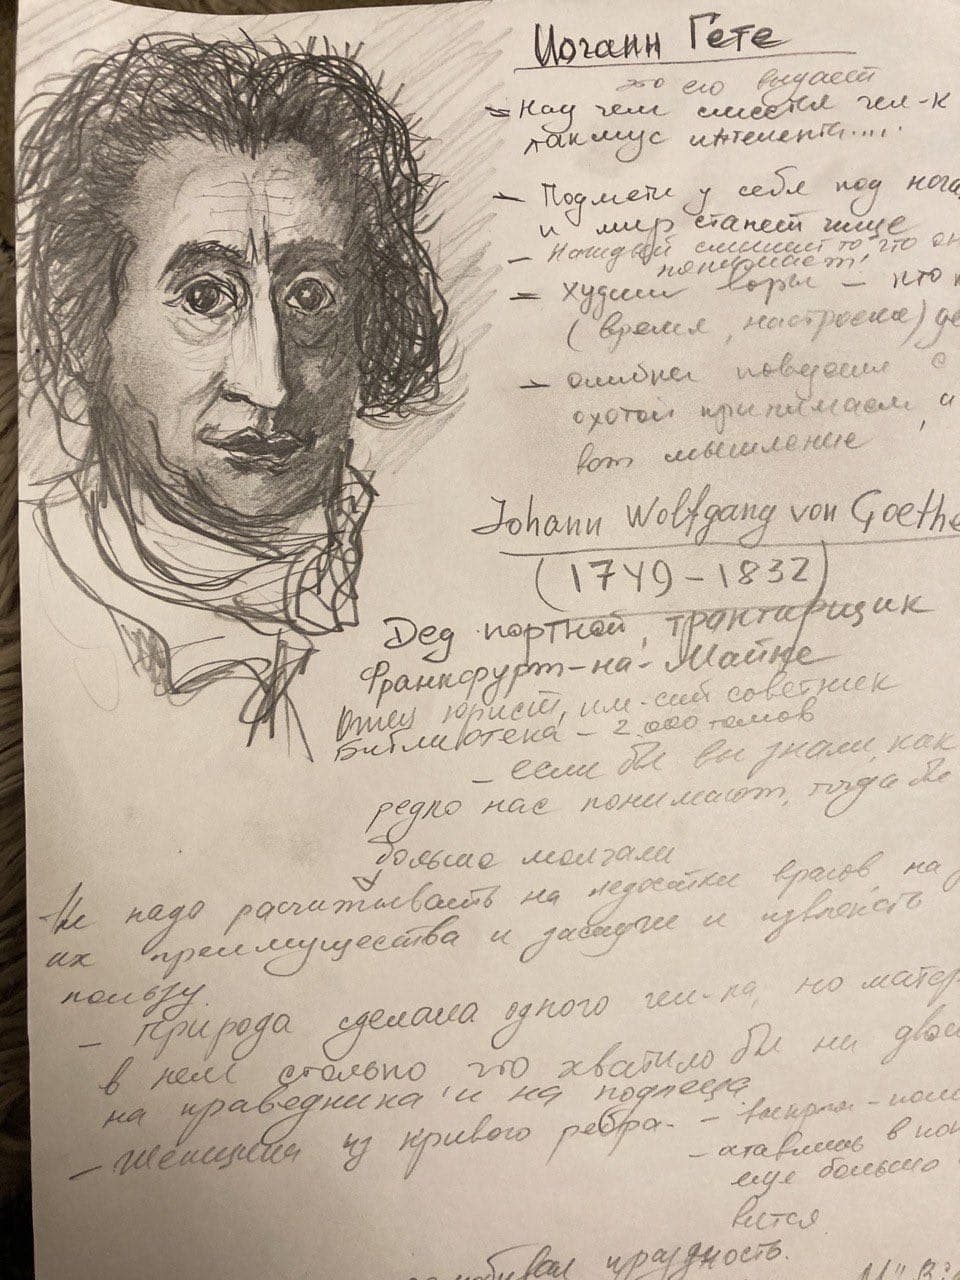 Иоганн Гете
это его выдаёт
= Над чем смеётся чел-к
лакмус интелента.....
- Подмети у себя под нога
и мир станет чище
- Каждый слышит то, что он
понимает
= Худшие воры – кто
(время, настроение)
- ошибки поведения с
охотой принимаем, а
вот мышление
Johann Wolfgang von Goethe
(1749-1832)
Дед портной, трактирщик
Франкфурт-на-Майне
Отец юрист, им-ский советник
Библиотека - 2.000 томов
- если бы вы знали, как
редко нас понимают, тогда бы
больше молчали
Не надо расчитывать на недостки врагов, на
их преимущества и заслуги и извлекать
пользу.
- Природа сделала одного чел-ка, но матер
в нем столько что хватило бы на двои
на праведника и на подлеца
- Женщина из кривого ребра. -
- оставишь в пок
еще больше
вится
праздность.